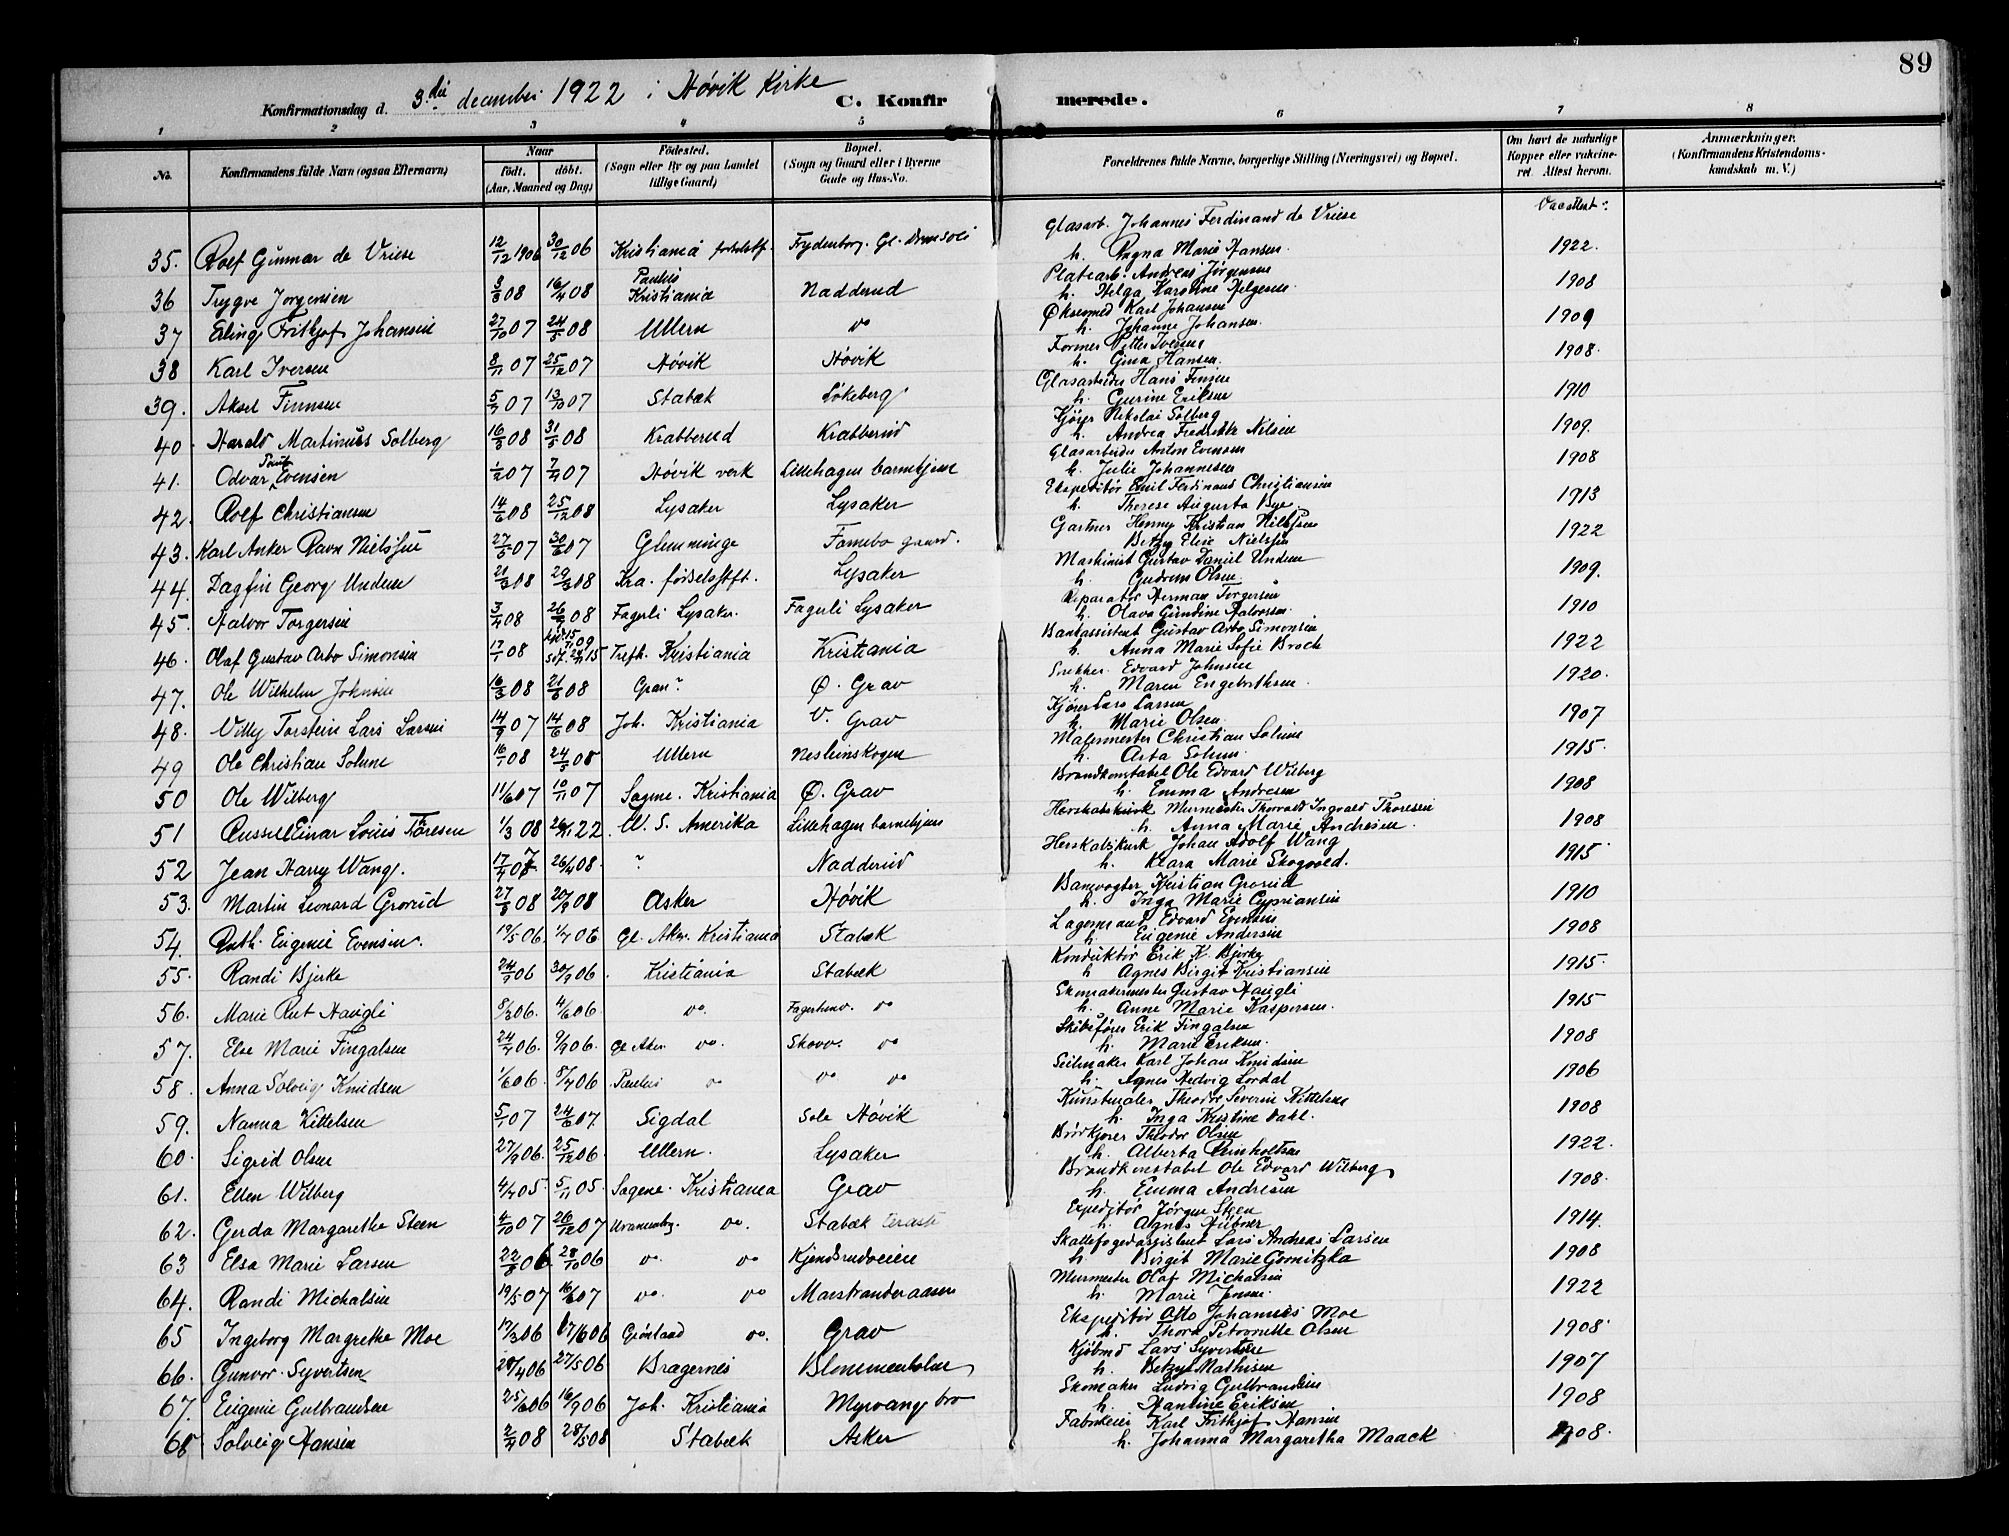 89
Konfirmationsdag d. 3die december 1922 i Høvik Kirke C. Konfirmerede.
1 2 3 4 5 6 7 8
No. Konfirmandens fulde Navn (ogsaa Efternavn) Naar født. døbt. (Aar, Maaned og Dag) Fødested. (Sogn eller By og paa Landet tillige Gaard) Bopæl. (Sogn og Gaard eller i Byerne Gade og Hus-No. Forældrenes fulde Navne, borgerlige Stilling (Næringsvei) og Bopæl. Om havt de naturlige Kopper eller vakcineret. Attest herom. Anmærkninger. (Konfirmandens Kristendomskundskab m. V.)
Glasarb. Johannes Ferdinand de Vriese
35. Rolf Gunnar de Vriese 12/12 1906 30/12 06 Kristiania fødselsst. Frydenborg. Gl. h. Ragna Marie Hansen. 1922.
Platearb. Andreas Jørgensen
36 Trygve Jørgensen 3/3 08 16/4 08 Paulus Kristiania Nadderud h. Helga Karoline Helgesen. 1908
Karl Johansen
37 Erling Frithjof Johansen 27/10 07 24/5 08 Ullern do h. Johanne Johansen. 1909
Former Petter Iversen
38 Karl Iversen 8/11 07 25/12 07 Høvik Høvik h. Gina Hansen. 1908.
Glasarbeider Hans Finsen
39. Aksel Finnsen 5/7 07 13/10 07 Stabæk Løkeberg h. Gurine Eriksen 1910
Kjører Nikolai Solberg
40. Harald Martinus Solberg 16/3 08 31/5 08 Krabberud Krabberud h. Andrea Fredrikke Nilsen 1909.
Glasarbeider Anton Evensen
41. Odvar Evensen 1/2 07 7/4 07 Høvik verk Lillehagen barnehjem h. Julie Johannesen 1908
Ekspeditør Emil Ferdinand Christiansen
42. Rolf Christiansen 14/6 08 25/12 08 Lysaker Lysaker h. Therese Augusta Bye. 1913
Gartner Henny Kristian Nielsen
43. Karl Anker Ravn Nielsen 27/5 07 30/6 07 Glemminge gaard. Betzy Elise Nielsen 1922
Maskinist Gustav Daniel Undem
44. Dagfin Georg Undem 21/3 08 29/3 08 Kra. fødselsstft. Lysaker h. Gudrun Olsen 1909.
Reparatør Herman Torgersen
45. Halvor Torgersen 3/4 08 26/7 08 Fagerli Lysaker. Fagerli Lysaker h. Olava Gundine Halvorsen. 1910
Bankassistent Gustav Arbo Simonsen
46. Olaf Gustav Arbo Simonsen 17/1 08 Trefh. Kristiania Kristiania h. Anna Marie Sofie Broch 1922
Edvard Johnsen
47. Ole Wilhelm Johnsen 16/3 08 21/6 08 Gran? Ø. Grav h. Maren Engebrethsen. 1920.
Kjører Lars Larsen
48. Willy Torstein Lars Larsen 14/9 07 14/6 08 Joh. Kristiania V. Grav h. Marie Olsen. 1907
Malermester Christian Solum
49 Ole Christian Solum 16/1 08 24/5 08 Ullern Nesleinskogen h. Asta Solum. 1915.
Brandkonstabel Ole Edvard Wilberg
50 Ole Wilberg 11/6 07 10/11 07 Sagene. Kristiania Ø. Grav h. Emma Andresen 1908
Murmester Thorvald Ingvald Thoresen
51 Russell Einar Louis Toresen 1/3 08 26/11 22 U. S. Amerika Lillehagen barnehjem h. Anna Marie Andresen. 1908
Herskabskusk Johan Adolf Wang
52 Jean Harry Wang. 17/7 07 26/4 08 ? Nadderud h. Klara Marie Skogvold. 1915
Banevogter Kristian Grorud
53. Martin Leonard Grorud 27/8 08 20/9 08 Asker Høvik h. Inga Marie Cypriansen 1910
Lagermand Edvard Evensen
54. Ruth. Eugenie Evensen. 19/5 06. 1/7 06 Gl. Aker. Kristiania Stabæk h. Eugenie Andersen 1908
Konduktør Erik K. Bjerke
55. Randi Bjerke 24/7 06 30/9 06 Kristiania Stabæk h Agnes Birgit Kristiansen 1915.
Skomakermester Gustav Haugli
56. Marie Rut Haugli 8/3 06. 4/6 06 do. do h. Anne Marie Kaspersen. 1915
Skibsfører Erik Fingalsen
57. Else Marie Fingalsen 24/7 06. 9/9 06. Gl Aker do. Skovv. do h. Marie Eriksen. 1908
Seilmaker Karl Johan Knudsen
58. Anna Solveig Knudsen 1/6 06. 8/7 06 Paulus do do do h. Agnes Hedvig Lordal 1906
Kunstmaler Theodor Severin Kittelsen
59. Nanna Kittelsen 5/1 07 24/6 07. Sigdal Sole Høvik h. Inga Kristine Dahl. 1908
Brødkjører Theodor Olsen
60. Sigrid Olsen 27/9 06. 25/12 06. Ullern. Lysaker h. Alberta Reinholtsen 1922.
Brandkonstabel Ole Edvard Wilberg
61. Ellen Wilberg 4/7 05 5/11 05. Sagene. Kristiania Grav h. Emma Andresen 1908.
Expeditør Jørgen Steen
62. Gerda Margarethe Steen 4/10 07 26/12 07 Uranienborg. do. Stabæk terasse h. Agnes Hübner 1914.
Skattefogedassistent Lars Andreas Larsen
63 Elsa Marie Larsen 22/8 06 28/10 06 do. do Kjendsrudveien h Birgit Marie Gornitzka 1908
Murmester Olaf Michalsen
64. Randi Michalsen 19/5 07 16/6 07 do. do Maestranderaasen h. Marie Jensen. 1922
Ekspeditør Otto Johannes Moe
65 Ingeborg Margrethe Moe 17/3 06 17/6 06 Grønland do. Grav h. Thora Petronelle Olsen 1908.
Kjøbmd Lars Syvertsen
66. Gunvor. Syvertsen 29/4 06 27/5 06 Bragernes Blommenholm h. Betzy Mathisen 1907
Skomaker Ludvig Gulbrandsen
67. Eugenie Gulbrandsen 25/6 06 16/9 06 Joh. Kristiania Myrvang bro h. Hantine Eriksen 1908
Karl Frithjof Hansen
68 Solveig Hansen 2/4 08 28/5 08 Stabæk Asker h. Johanna Margaretha Maack 1908.